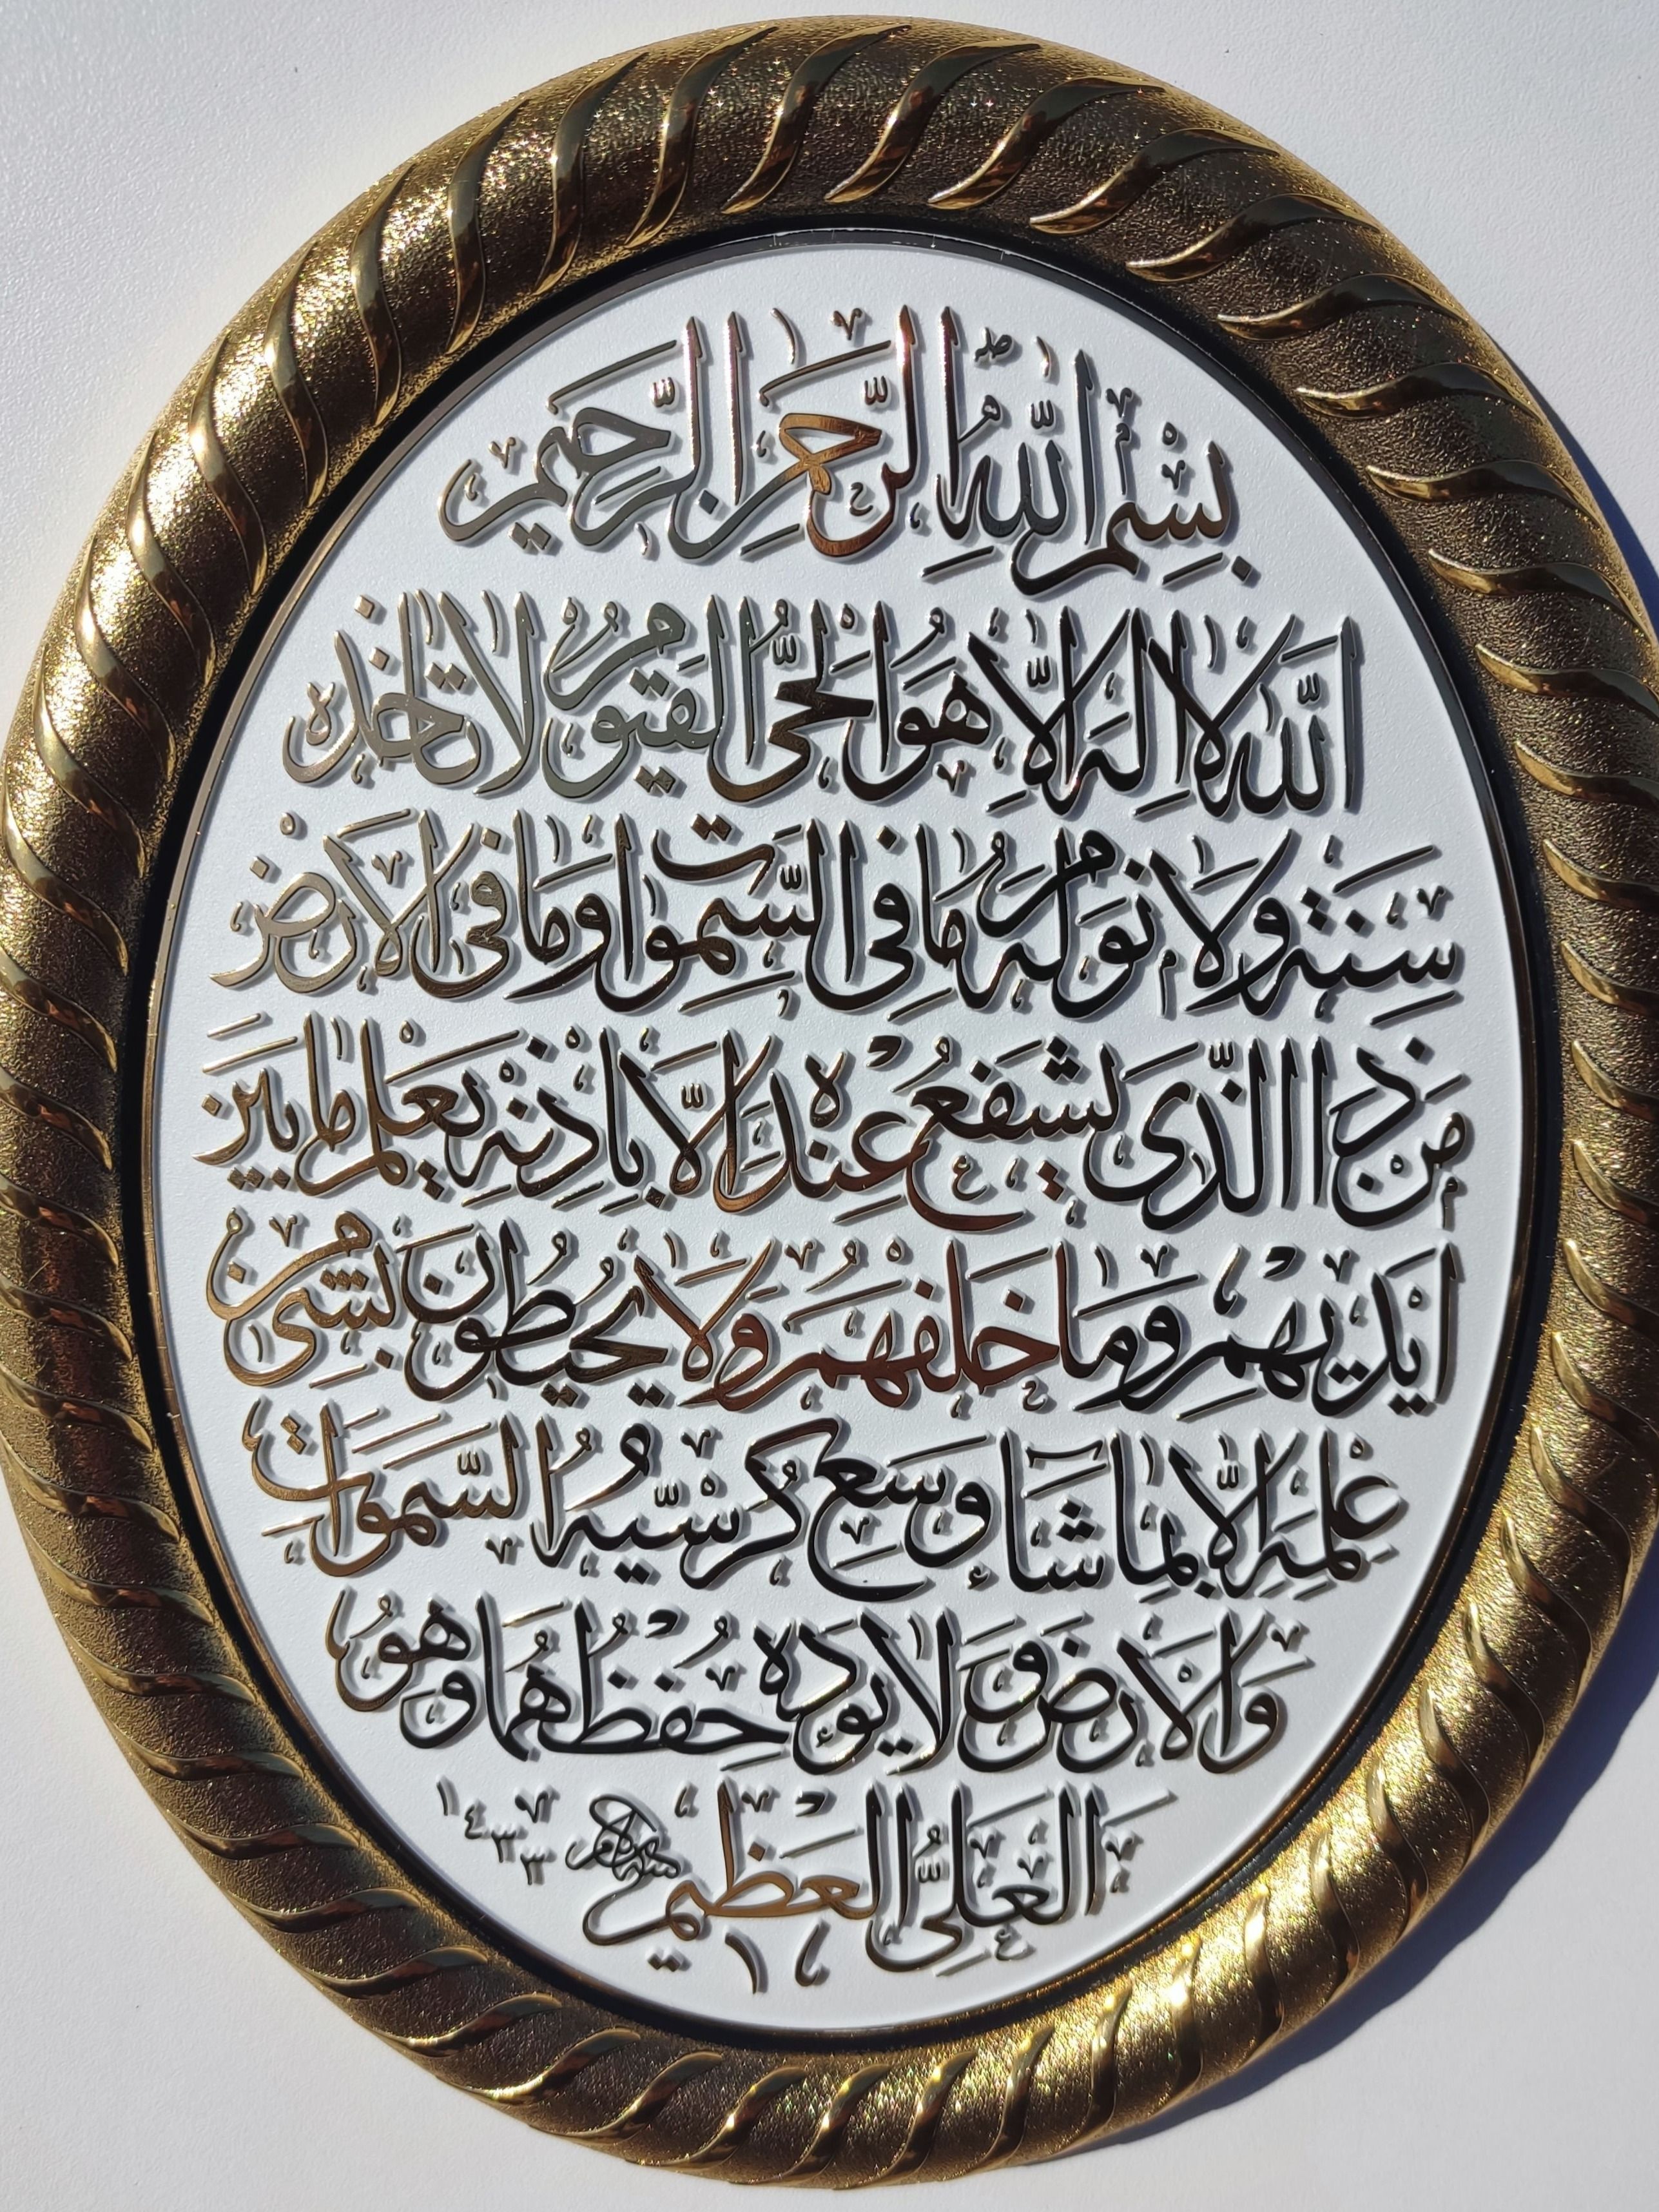 بِسْمِ اللّٰهِ الرَّحْمٰنِ الرَّحِيمِ
اَللّٰهُ لَا اِلٰهَ اِلَّا هُوَ الْحَىُّ الْقَيُّومُ لَا تَأْخُذُهُ
سِنَةٌ وَلَا نَوْمٌ لَهُ مَا فِى السَّمٰوَاتِ وَمَا فِى الْاَرْضِ
مَنْ ذَا الَّذِى يَشْفَعُ عِنْدَهُ اِلَّا بِاِذْنِهِ يَعْلَمُ مَا بَيْنَ
اَيْدِيهِمْ وَمَا خَلْفَهُمْ وَلَا يُحِيطُونَ بِشَىْءٍ مِنْ
عِلْمِهِ اِلَّا بِمَا شَاءَ وَسِعَ كُرْسِيُّهُ السَّمٰوَاتِ
وَالْاَرْضَ وَلَا يَؤُدُهُ حِفْظُهُمَا وَهُوَ
الْعَلِىُّ الْعَظِيمُ
١٤٣٣